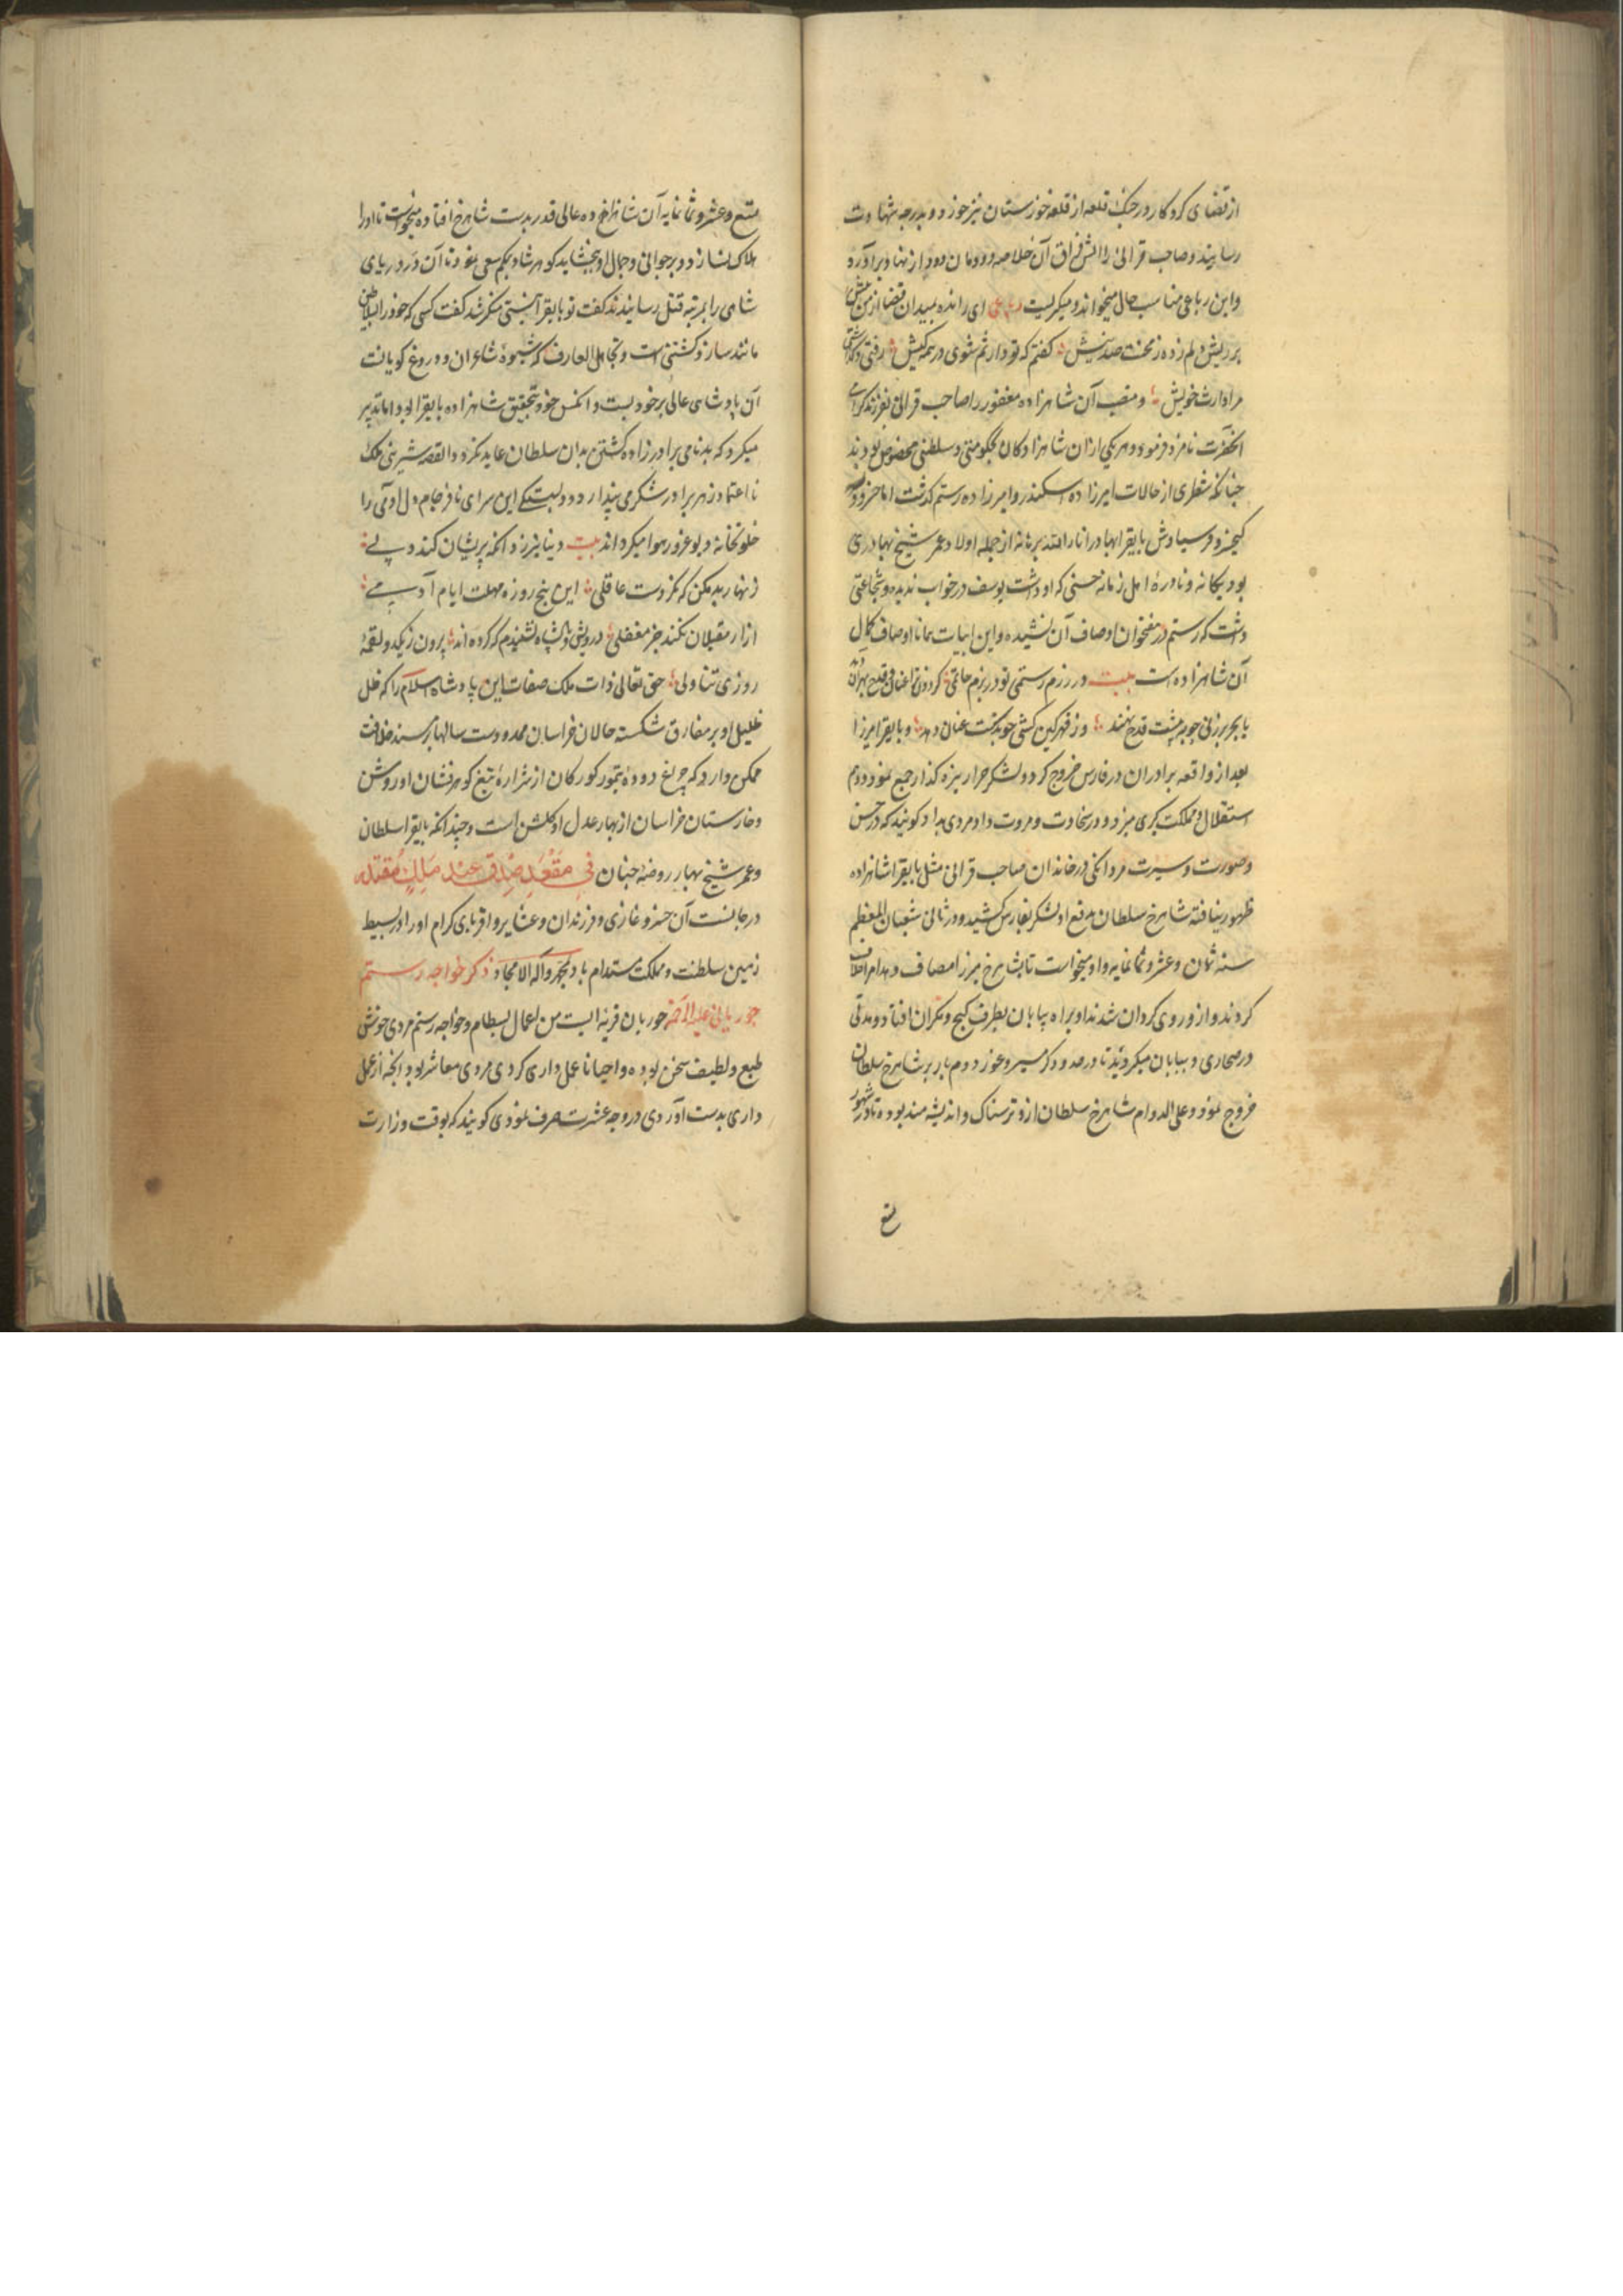 از قضای کردکار در جنک قلعه از قلعه خوزستان تیر خورد و بدرجه شهادت
رسانیدند و صاحب قرانی را آتش فراق آن خلاصه دودمان دود از نهاد برآورد
و این رباعی مناسب حال میخواند و میکریست رباعی ای رانده بمیدان قضا از من
بر ریش دلم زده ز محنت صد نیش کفتم که تو وارثم شوی در همه کیش رفتی و کذاشتی
مرا وارث خویش و منصب آن شاهزاده مغفور را صاحب قرانی بفرزند
آنحضرت نامزد فرمود و هر یکی ازان شاهزادکان بحکومتی و سلطنتی مخصوص بودند
چنانکه شطری از حالات امیرزاده اسکندر و امیرزاده رستم کذشت اما
کیخسرو فر سیاوش بایقرا بهادر انار الله برهانه از جمله اولاد عمر شیخ بهادری
بود یکانه و نادره اهل زمانه حسنی که او داشت یوسف در خواب ندیده و شجاعتی
داشت که رستم در هفتخوان اوصاف آن نشیده و این ابیات همانا اوصاف کمال
آن شاهزاده است بیت در رزم رستمی تو در بزم حاتمی
با بحر بر زنی چو بمشت قدح نهند وز قهر کین کشی چو بدستت عنان دهد و بایقرا میرزا
بعد از واقعه برادران در فارس خروج کرد و لشکر جرار نیزه کذار جمع نمود و دم
استقلال و مملکت کیری میزد و در سخاوت و مروت داد مردی بداد کویند که در حسن
و صورت و سیرت و مردانکی در خاندان صاحب قرانی مثل بایقرا شاهزاده
ظهور نیافته شاهرخ سلطان بدفع او لشکر بفارس کشید و در ثانی شعبان المعظم
سنه ثمان و عشر و ثمانمایه و او میخواست تا با شاهرخ میرزا مصاف دهد امرا خلاف
کردند و ازو روی کردان شدند او براه بیابان بطرف کیج و مکران افتاد و مدتی
در صحاری و بیابان میکردید تا در حدود کرمسیر و غور دوم بار بر شاهرخ سلطان
خروج نمود و علی الدوام شاهرخ سلطان ازو ترسناک و اندیشه مند بوده تا در شهور
تسع
تسع و عشر و ثمانمایه آن شاهزاده عالی قدر بدست شاهرخ افتاده میخواست تا او را
هلاک نسازد و بر جوانی و جمال او ببخشاید کوهرشاد بیکم سعی نمود تا آن در دریای
شاهی را بمرتبه قتل رسانیدند کفت تو بایقرا نیستی منکر شد کفت کسی که خود را بسلاطین
مانند سازد کشتنی است و تجاهل العارف که شیوه شاعران و دروغ کویانست
آن پادشاه عالی بر خود بست و آنکس خود بتحقیق شاهزاده بایقرا بود اما تدبیر
میکرد که بدنامی برادرزاده کشتن بدان سلطان عاید نکردد القصه شیرینی ملک
نا اعتماد زهر برادر شکر می پندارد و دلبستکی این سرای نافرجام دل آدمی را
خلوتخانه دیو غرور و هوا میکرداند بیت دنیا نیرزد آنکه پریشان کند دلی
زنهار بد مکن که نکردست عاقلی این پنج روزه مهلت ایام آدمی
آزار مقبلان نکند جز مغفلی درویش و پادشاه نشنیدم که کرده اند بیرون زیک دو لقمه
روزی تناولی حق تعالی ذات ملک صفات این پادشاه اسلام را که ظل
ظلیل او بر مفارق شکسته حالان خراسان ممدودست سالها بر مسند خلافت
ممکن دارد که چراغ دوده تیمور کورکان از شراره تیغ کوهرفشان او روشن
و خارستان خراسان از بهار عدل او کلشن است و چندانکه بایقرا سلطان
و عمر شیخ بهادر روضه جنان فی مقعد صدق عند ملیک مقتدر
در مجالست آن خسرو غازی و فرزندان و عشایر و اقربای کرام او را در بسیط
زمین سلطنت و مملکت مستدام باد بمحمد و آله الامجاد ذکر خواجه رستم
خوریانی علیه الرحمه خوریان قریه ایست من اعمال بسطام و خواجه رستم مردی خوش
طبع و لطیف سخن بوده و احیانا عمل داری کردی مردی معاشر بود و آنچه از عمل
داری بدست آوردی در وجه عشرت صرف نمودی کویند که بوقت وزارت